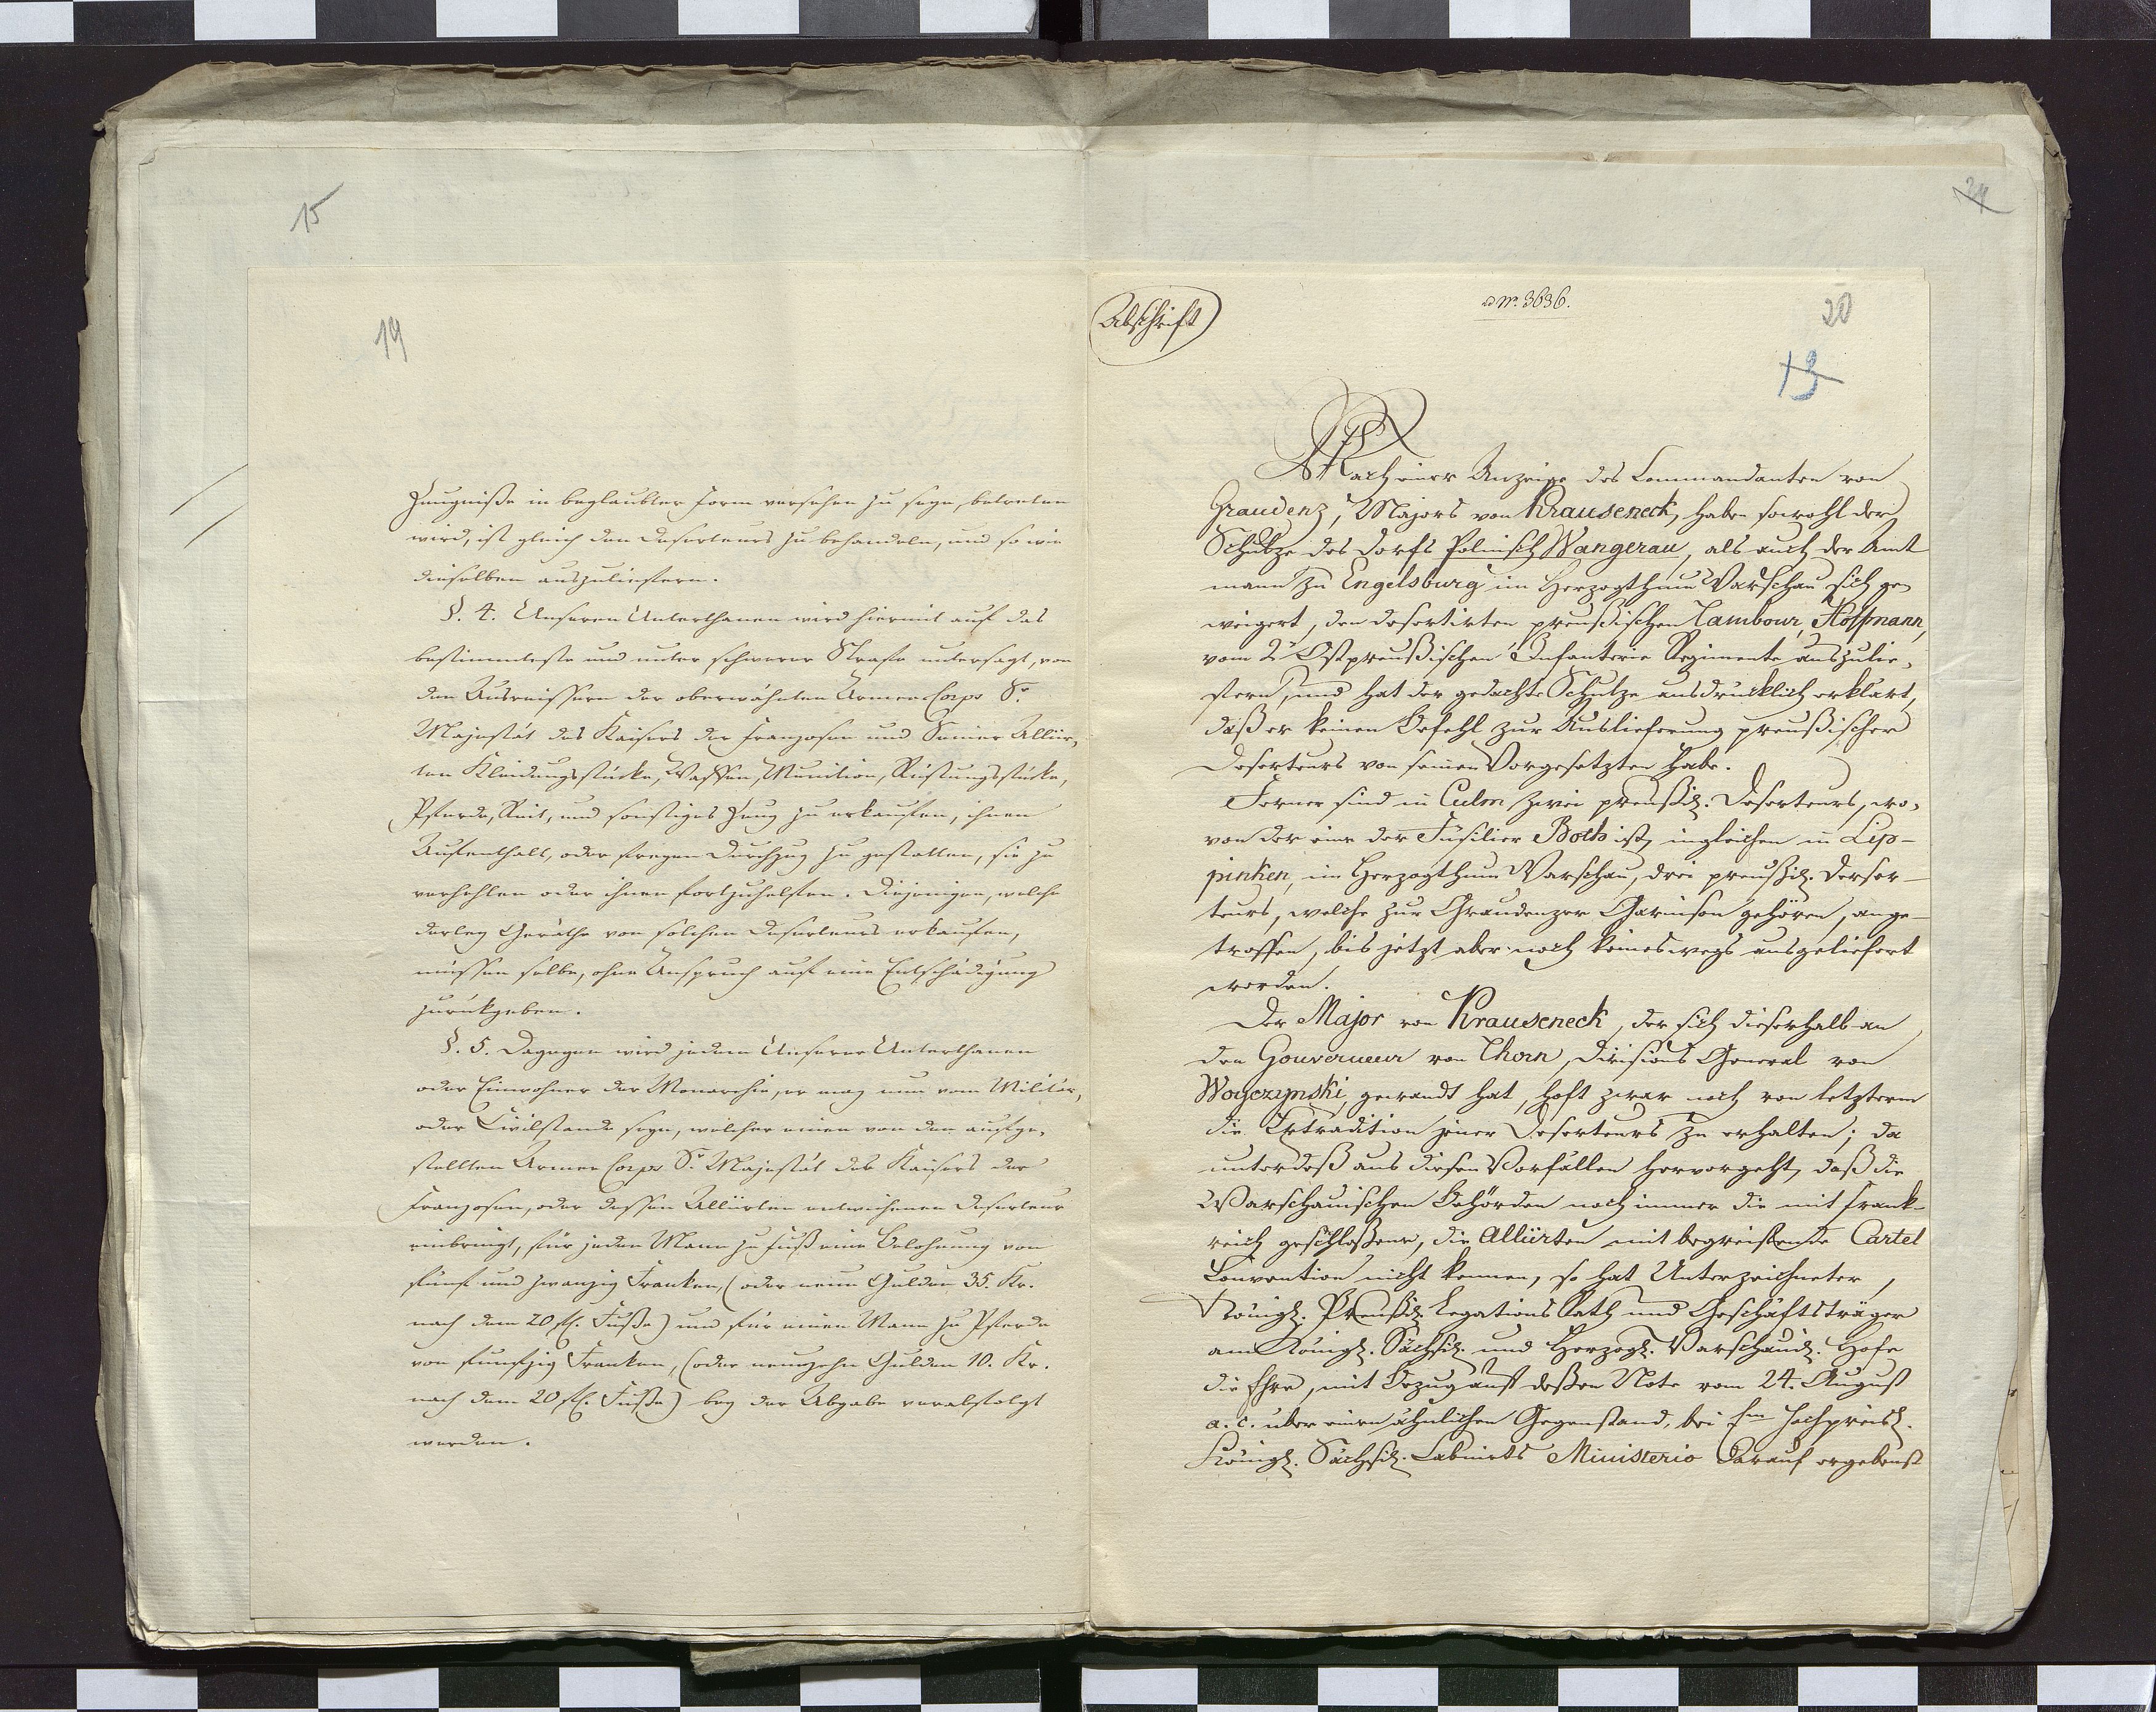 15
19
Zeugniße in beglaubter Form versehen zu seyn, betreten
wird, ist gleich den Deserteurs zu behandeln, und so wie
dieselben auszuliefern.
§. 4. Unseren Unterthanen wird hiermit auf das
bestimmteste und unter schwerer Strafe untersagt, von
den Ausreissern der oberwähnten Armee Corps Sr.
Majestät des Kaisers der Franzosen und Seiner Alliir-
ten Kleidungsstücke, Waffen, Munition, Rüstungsstücke,
Pferde, Reit, und sonstiges Zeug zu erkaufen, ihnen
Aufenthalt, oder freyen Durchzug zu gestatten, sie zu
verhehlen oder ihnen fortzuhelfen. Diejenigen, welche
derley Geräthe von solchen Deserteurs erkaufen,
müssen selbe, ohne Anspruch auf eine Entschädigung
zurückgeben.
§. 5. Dagegen wird jedem Unserer Unterthanen
oder Einwohner der Monarchie, er mag nun vom Militär,
oder Civilstande seyn, welcher einen von den aufge-
stellten Armee Corps Sr. Majestät des Kaisers der
Franzosen, oder dessen Alliirten entwichenen Deserteur
einbringt, für jeden Mann zu Fuß eine Belohnung von
fünf und zwanzig Franken, (oder neun Gulden 35. Kr.
nach dem 20 fl. Fuße) und für einen Mann zu Pferde
von funfzig Franken, (oder neunzehn Gulden 10. Kr.
nach dem 20 fl. Fuße) bey der Abgabe verabfolgt
werden.
Abschrift
ad Nr. 3636.
20
13
24
Nach einer Anzeige des Commandanten von
Graudenz, Majors von Krauseneck, haben sowohl der
Schulze des Dorfs Polnisch Wangerau, als auch der Amt
mann zu Engelsburg im Herzogthum Warschau sich ge-
weigert, den desertirten preußischen Tambour, Hoffmann,
vom 2n Ostpreußischen Infanterie Regimente auszulie-
fern, und hat der gedachte Schulze ausdrücklich erklärt,
daß er keinen Befehl zur Auslieferung preußischer
Deserteurs von seinen Vorgesetzten habe.
Ferner sind in Culm zwei preußis. Deserteurs, wo-
von der eine der Füsilier Both ist, ingleichen in Lip-
pinken, im Herzogthum Warschau, drei preußis. Deser-
teurs, welche zur Graudenzer Garnison gehören, ange-
troffen, bis jetzt aber noch keineswegs ausgeliefert
worden.
Der Major von Krauseneck, der sich dieserhalb an
den Gouverneur von Thorn, Divisions General von
Woyczynski, gewandt hat, hoft zwar noch von letzterm
die Extradition jener Deserteurs zu erhalten; da
unterdeß aus diesen Vorfällen hervorgeht, daß die
Warschauischen Behörden noch immer die mit Frank-
reich geschloßene, die Alliirten mit begreifende Cartel
Convention nicht kennen, so hat Unterzeichneter,
Königl. Preußis. Legations Rath und Geschäftsträger
am Königl. Sächsis. und Herzogl. Warschauis. Hofe
die Ehre, mit Bezug auf deßen Note vom 24. August
a. c. über einen ähnlichen Gegenstand, bei Em Hochpreisl.
Königl. Sächsis. Cabinets Ministerio darauf ergebenst